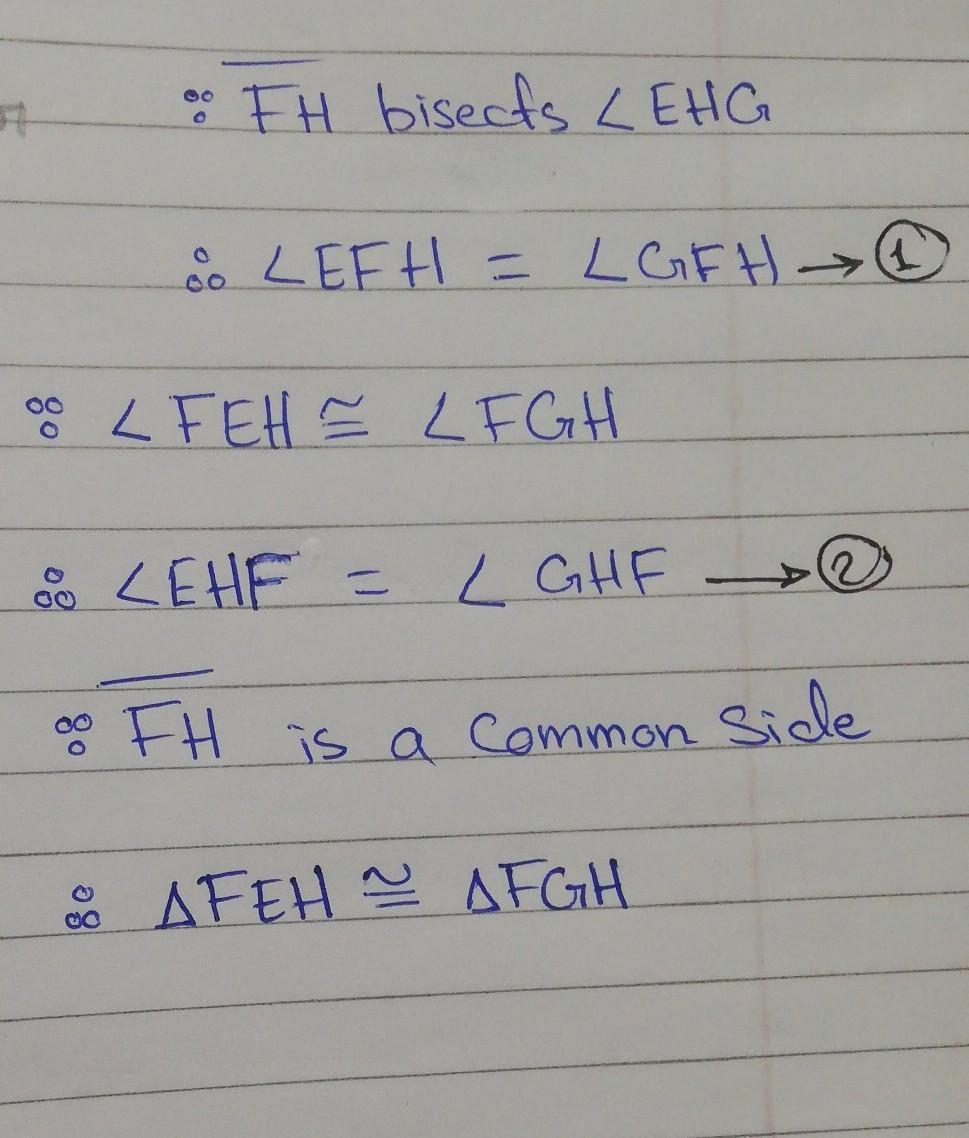 ∵ F̅H̅ bisects ∠EHG
∴ ∠EFH = ∠GFH → ①
∵ ∠FEH ≅ ∠FGH
∴ ∠EHF = ∠GHF → ②
∵ F̅H̅ is a Common Side
∴ ΔFEH ≅ ΔFGH